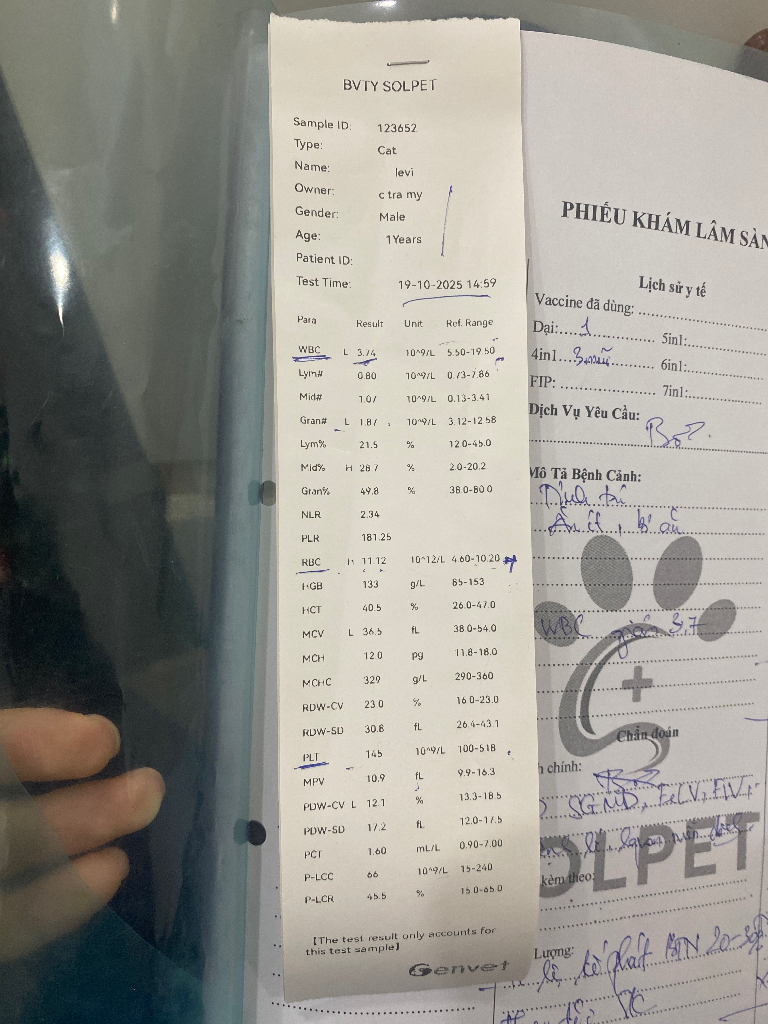 BVTY SOLPET
Sample ID: 123652
Type: Cat
Name: levi
Owner: c tra my
Gender: Male
Age: 1Years
Patient ID:
Test Time: 19-10-2025 14:59
Para Result Unit Ref. Range
WBC L 3.74 10^9/L 5.50-19.50
Lym# 0.80 10^9/L 0.73-7.86
Mid# 1.07 10^9/L 0.13-3.41
Gran# L 1.87 10^9/L 3.12-12.58
Lym% 21.5 % 12.0-45.0
Mid% H 28.7 % 2.0-20.2
Gran% 49.8 % 38.0-80.0
NLR 2.34
PLR 181.25
RBC H 11.12 10^12/L 4.60-10.20
HGB 133 g/L 85-153
HCT 40.5 % 26.0-47.0
MCV L 36.5 fL 38.0-54.0
MCH 12.0 pg 11.8-18.0
MCHC 329 g/L 290-360
RDW-CV 23.0 % 16.0-23.0
RDW-SD 30.8 fL 26.4-43.1
PLT 145 10^9/L 100-518
MPV 10.9 fL 9.9-16.3
PDW-CV L 12.1 % 13.3-18.5
PDW-SD 17.2 fL 12.0-17.5
PCT 1.60 mL/L 0.90-7.00
P-LCC 66 10^9/L 15-240
P-LCR 45.5 % 15.0-65.0
[The test result only accounts for
this test sample]
Genvet
PHIẾU KHÁM LÂM SÀN
Lịch sử y tế
Vaccine đã dùng:
Dại: 1 5in1:
4in1 3 mũi 6in1:
FIP: 7in1:
Dịch Vụ Yêu Cầu:
Mô Tả Bệnh Cảnh:
Ăn ít
WBC giảm 3,7
Chẩn đoán
h chính:
SGMD, FeLV, FIV
OLPET
kèm theo:
Lượng:
20-30%